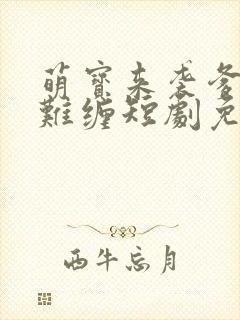 萌寶來袭爹
難缠短劇免
西牛忘月